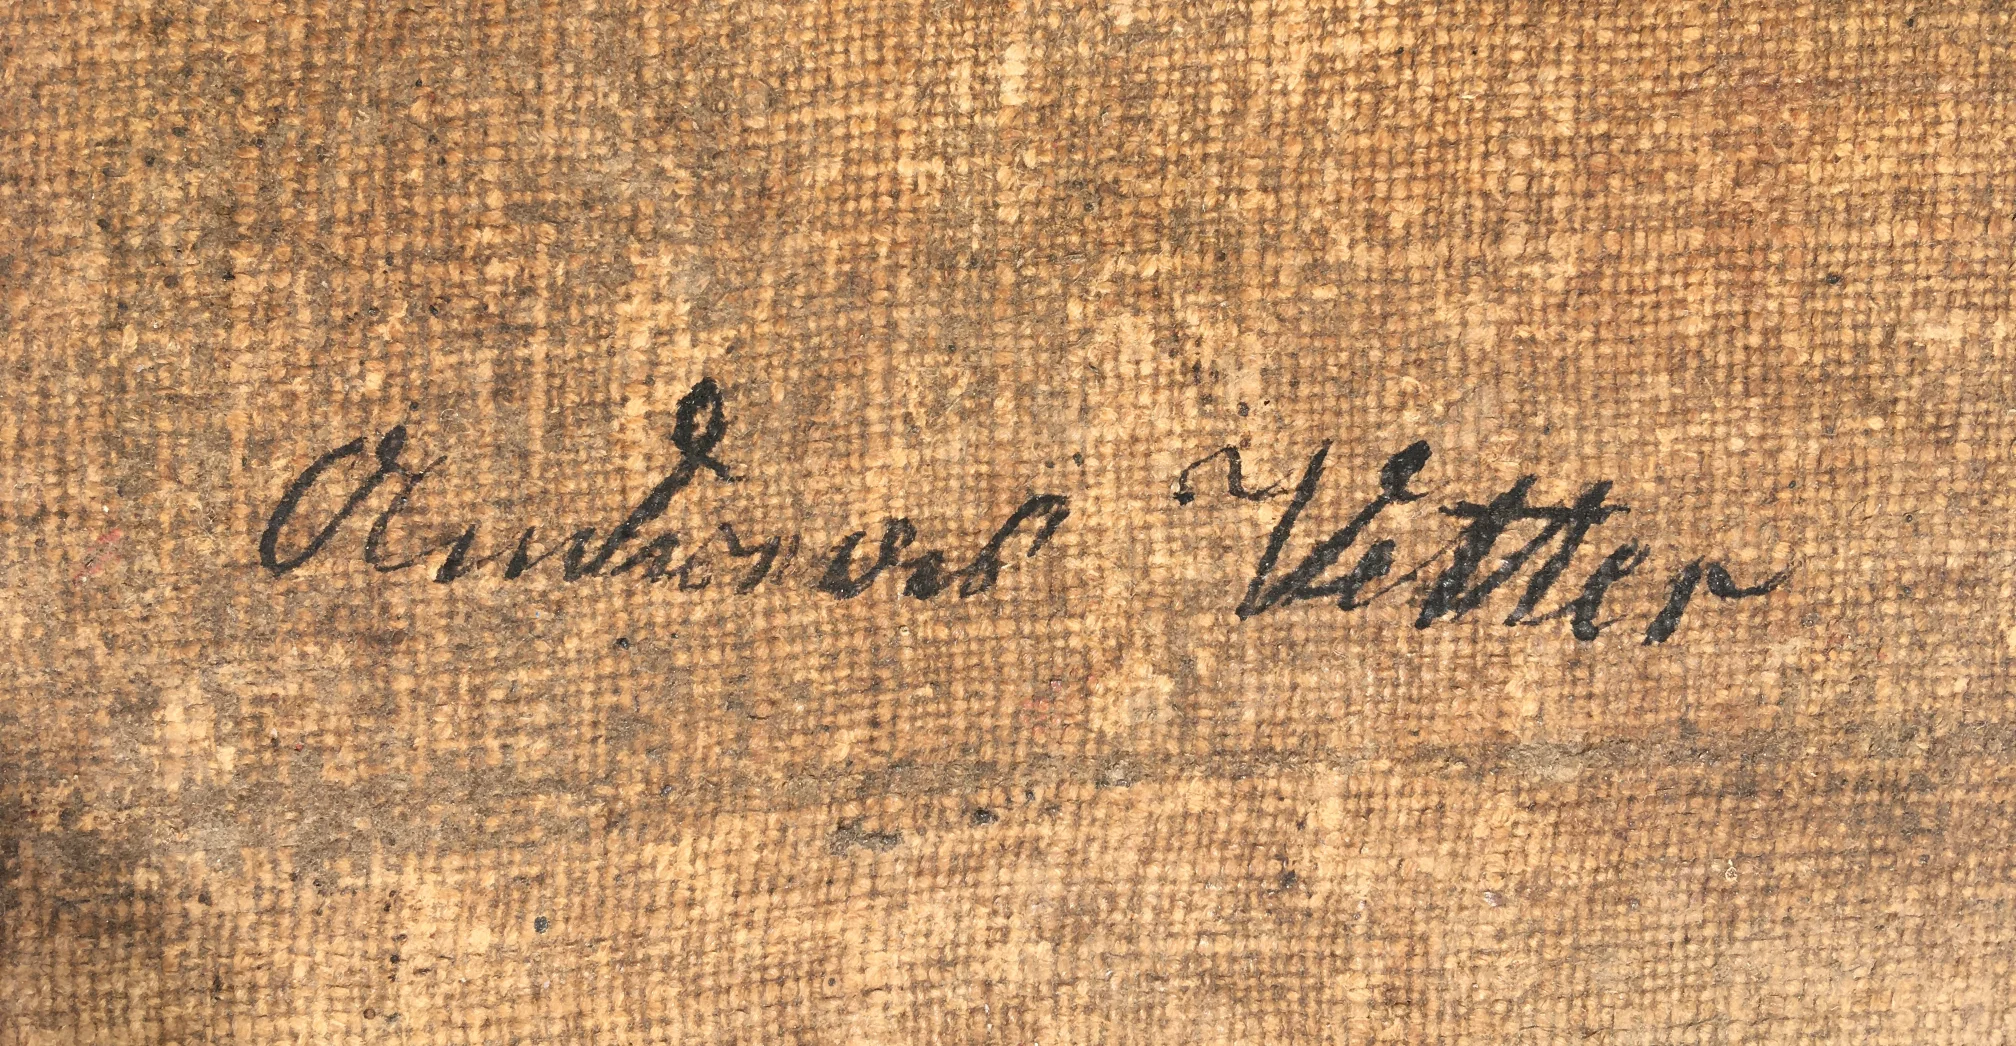 Andreas Vetter